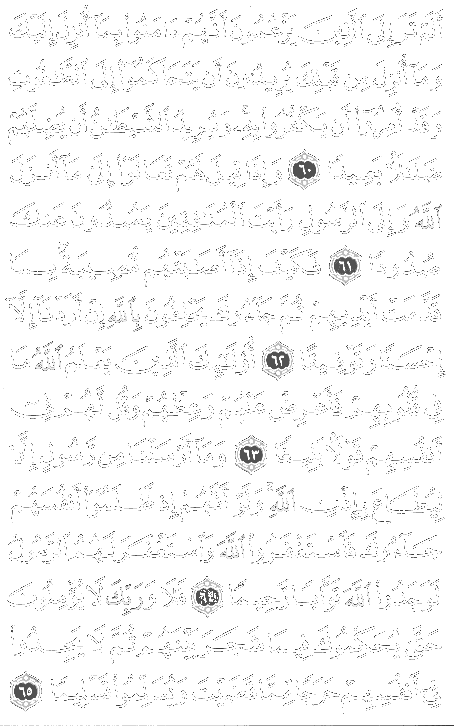 أَلَمْ تَرَ إِلَى ٱلَّذِينَ يَزْعُمُونَ أَنَّهُمْ ءَامَنُوا۟ بِمَآ أُنزِلَ إِلَيْكَ
وَمَآ أُنزِلَ مِن قَبْلِكَ يُرِيدُونَ أَن يَتَحَاكَمُوٓا۟ إِلَى ٱلطَّٰغُوتِ
وَقَدْ أُمِرُوٓا۟ أَن يَكْفُرُوا۟ بِهِۦ وَيُرِيدُ ٱلشَّيْطَٰنُ أَن يُضِلَّهُمْ
ضَلَٰلًۢا بَعِيدًا ٦٠ وَإِذَا قِيلَ لَهُمْ تَعَالَوْا۟ إِلَىٰ مَآ أَنزَلَ
ٱللَّهُ وَإِلَى ٱلرَّسُولِ رَأَيْتَ ٱلْمُنَٰفِقِينَ يَصُدُّونَ عَنكَ
صُدُودًا ٦١ فَكَيْفَ إِذَآ أَصَٰبَتْهُم مُّصِيبَةٌۢ بِمَا
قَدَّمَتْ أَيْدِيهِمْ ثُمَّ جَآءُوكَ يَحْلِفُونَ بِٱللَّهِ إِنْ أَرَدْنَآ إِلَّآ
إِحْسَٰنًا وَتَوْفِيقًا ٦٢ أُو۟لَٰٓئِكَ ٱلَّذِينَ يَعْلَمُ ٱللَّهُ مَا
فِى قُلُوبِهِمْ فَأَعْرِضْ عَنْهُمْ وَعِظْهُمْ وَقُل لَّهُمْ فِىٓ
أَنفُسِهِمْ قَوْلًۢا بَلِيغًا ٦٣ وَمَآ أَرْسَلْنَا مِن رَّسُولٍ إِلَّا
لِيُطَاعَ بِإِذْنِ ٱللَّهِ وَلَوْ أَنَّهُمْ إِذ ظَّلَمُوٓا۟ أَنفُسَهُمْ
جَآءُوكَ فَٱسْتَغْفَرُوا۟ ٱللَّهَ وَٱسْتَغْفَرَ لَهُمُ ٱلرَّسُولُ
لَوَجَدُوا۟ ٱللَّهَ تَوَّابًا رَّحِيمًا ٦٤ فَلَا وَرَبِّكَ لَا يُؤْمِنُونَ
حَتَّىٰ يُحَكِّمُوكَ فِيمَا شَجَرَ بَيْنَهُمْ ثُمَّ لَا يَجِدُوا۟
فِىٓ أَنفُسِهِمْ حَرَجًا مِّمَّا قَضَيْتَ وَيُسَلِّمُوا۟ تَسْلِيمًا ٦٥